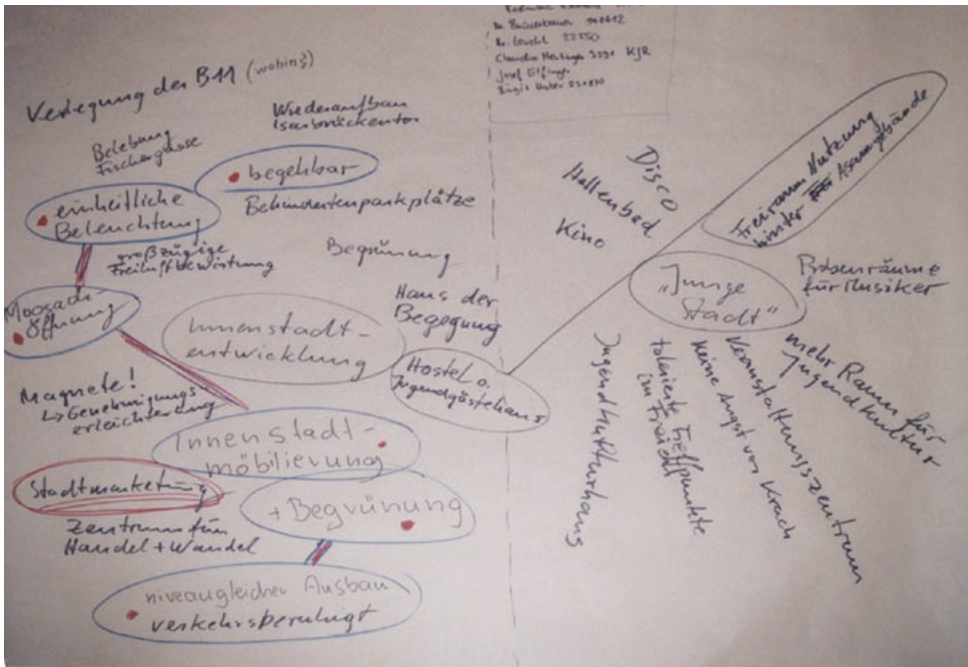 Verlegung der B11 (wohin?)
Wiederaufbau
Isarbrückentor
Belebung
Fischergasse
begehbar
einheitliche
Beleuchtung
Behindertenparkplätze
großzügige
Freiluftbewirtung
Begrünung
Moosach-
öffnung
Innenstadt-
entwicklung
Haus der
Begegung
Hostel o.
Jugendgästehaus
Magnete!
↳ Genehmigungs-
erleichterung
Innenstadt-
möbilierung
Stadtmarketing
+ Begrünung
Zentrum für
Handel + Wandel
niveaugleicher Ausbau
verkehrsberuhigt
KJR
Disco
Hallenbad
Kino
Freiraum Nutzung
hinter Asamgebäude
„Junge
Stadt"
Probenräume
für Musiker
mehr Raum für
Jugendkultur
Veranstaltungszentrum
keine Angst vor Krach
tolerierte Treffpunkte
im Freien
Jugendkulturhaus